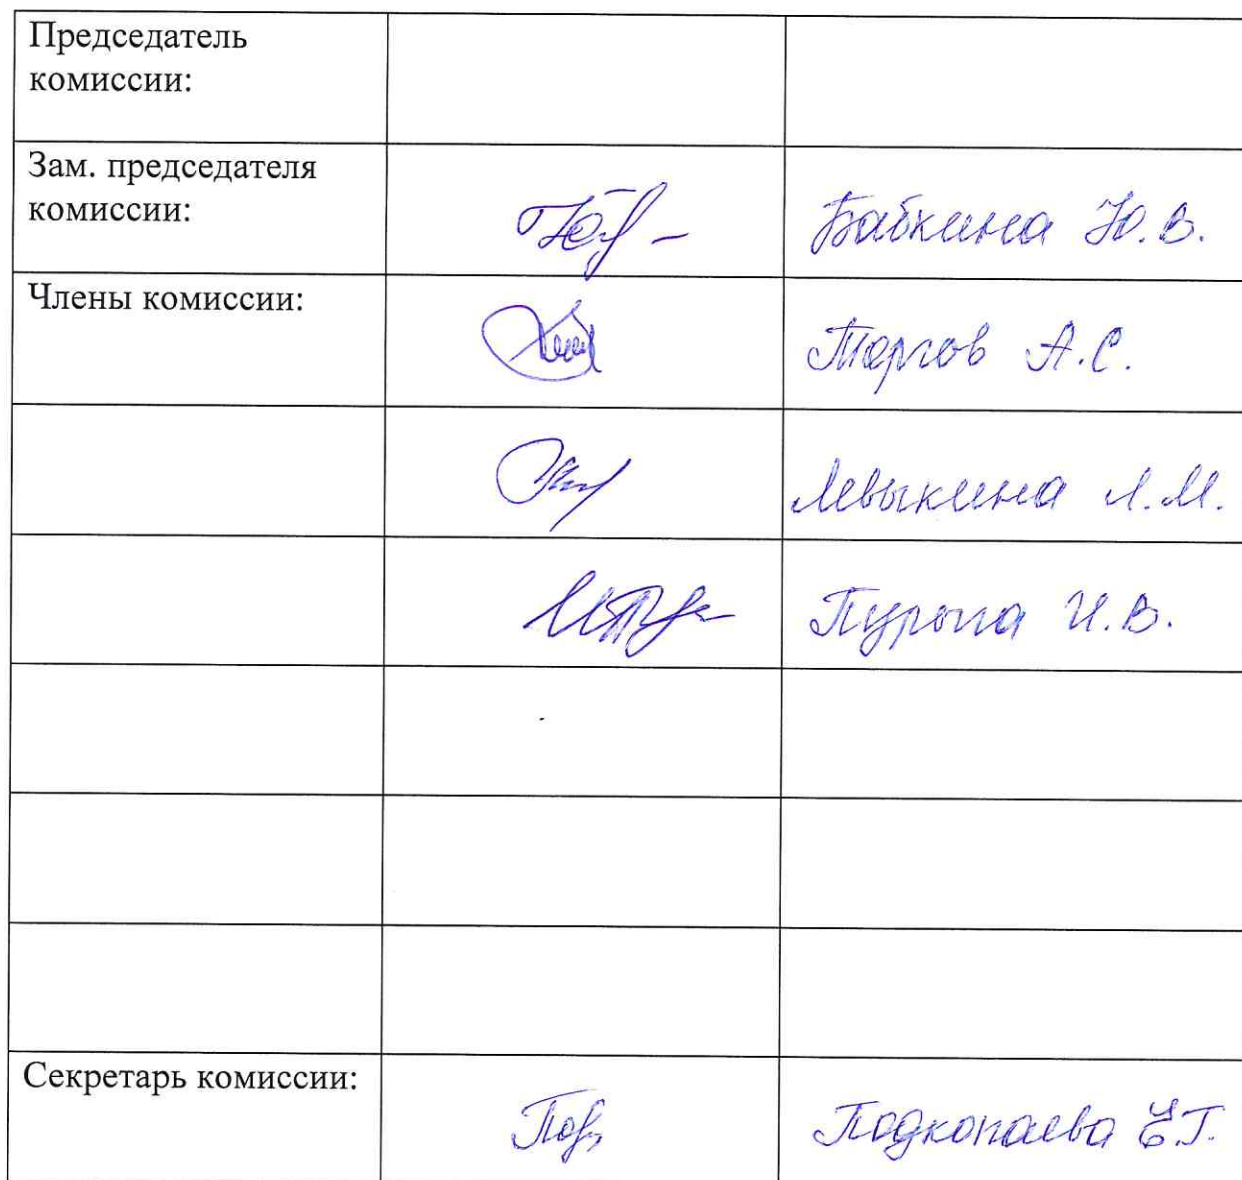 Председатель
комиссии:
Зам. председателя
комиссии:
Бабкина Ю.В.
Члены комиссии:
Торгов А.С.
Левыкина Л.М.
Пурыга И.В.
Секретарь комиссии:
Подкопаева Е.Г.